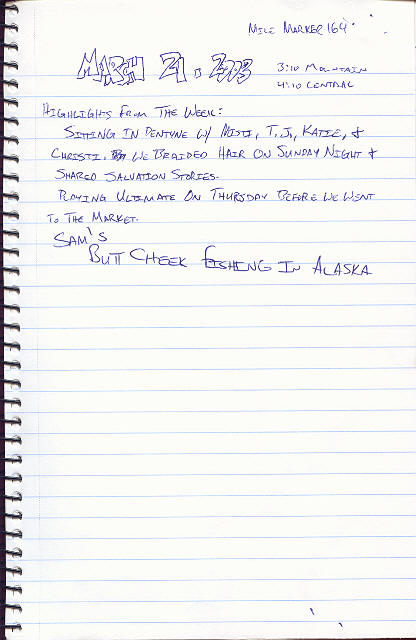 Mile Marker 164
March 21, 2003
3:10 Mountain
4:10 Central
Highlights from the Week:
Sitting in Pentyne w/ Misti, T.J., Katie, &
Christi. We Braided Hair on Sunday Night &
Shared Salvation Stories.
Playing Ultimate on Thursday Before We Went
to the Market.
Sam's
Butt Cheek Fishing in Alaska